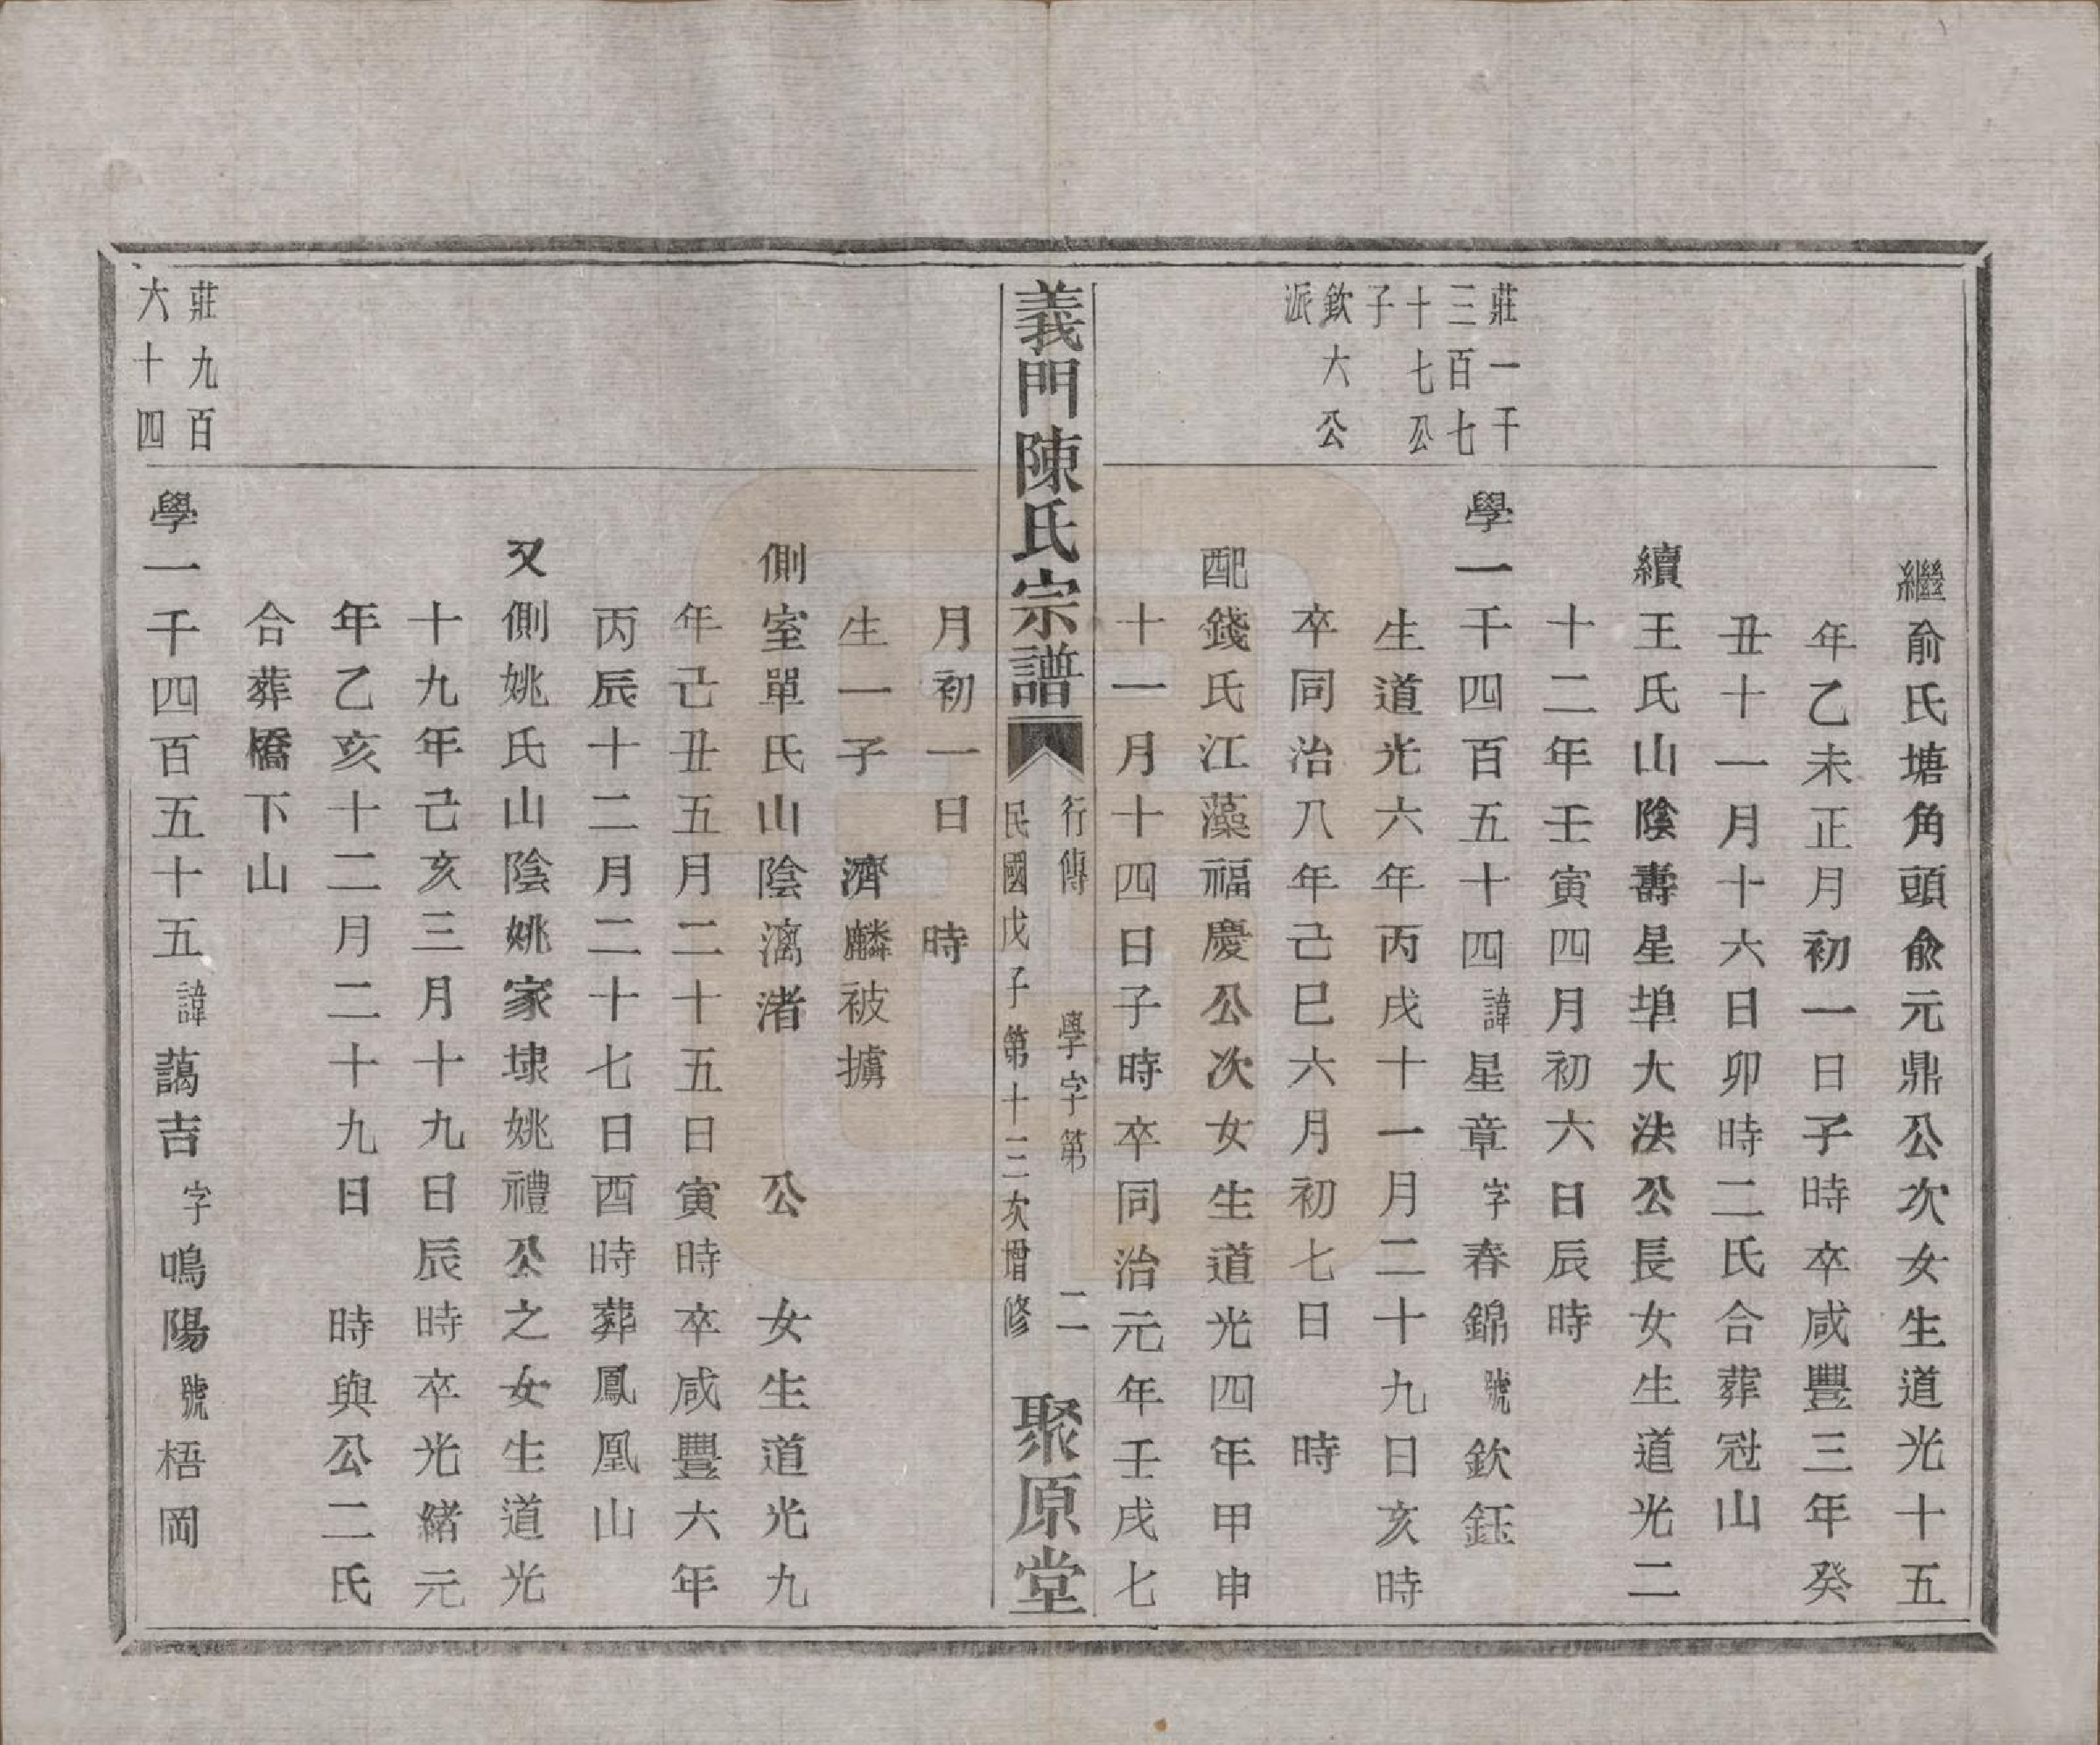 繼俞氏塘角頭俞元鼎公次女生道光十五
年乙未正月初一日子時卒咸豐三年癸
丑十一月十六日卯時二氏合葬冠山
續王氏山陰壽星埠大法公長女生道光二
十二年壬寅四月初六日辰時
莊一千
三百七
十七公
子
欽六公
派
學一千四百五十四諱星章字春錦號欽鈺
生道光六年丙戌十一月二十九日亥時
卒同治八年己巳六月初七日 時
配錢氏江藻福慶公次女生道光四年甲申
十一月十四日子時卒同治元年壬戌七
義門陳氏宗譜
行傳 學字第 二
民國戊子第十三次增修
聚原堂
月初一日 時
生一子 濟麟被擄
側室單氏山陰漓渚 公 女生道光九
年己丑五月二十五日寅時卒咸豐六年
丙辰十二月二十七日酉時葬鳳凰山
又側姚氏山陰姚家埭姚禮公之女生道光
十九年己亥三月十九日辰時卒光緒元
年乙亥十二月二十九日 時與公二氏
合葬橋下山
莊九百
六十四
學一千四百五十五諱藹吉字鳴陽號梧岡